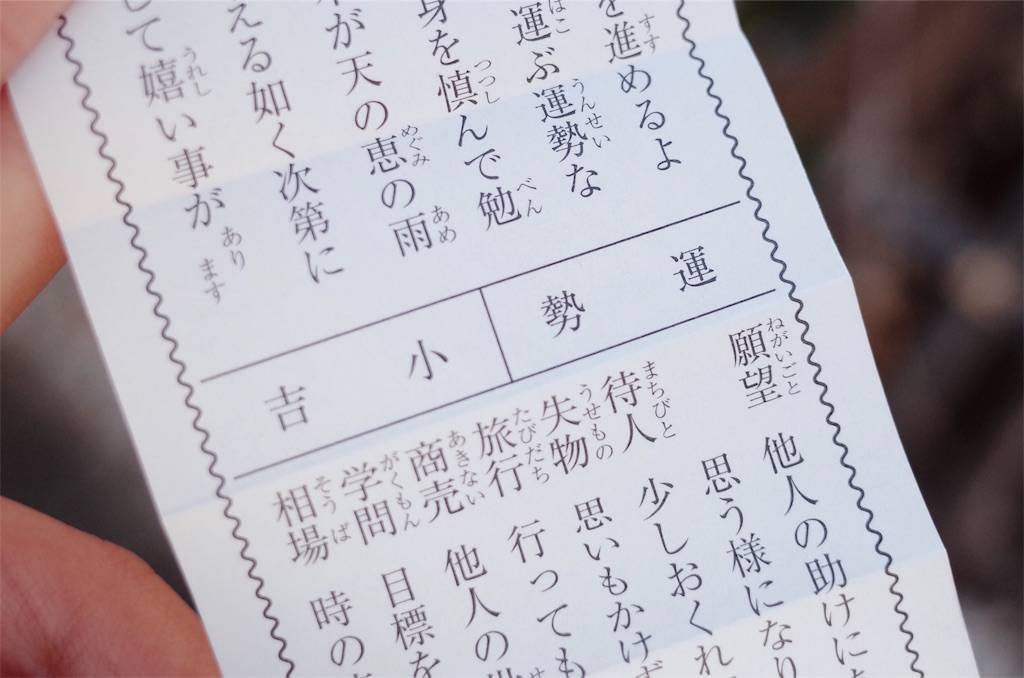 を進めるよ
運ぶ運勢な
身を慎んで勉
が天の恵の雨
える如く次第に
して嬉い事があります
運勢
小吉
願望 他人の助けに
思う様になり
待人 少しおくれ
失物 思いもかけず
旅行 行っても
商売 他人の
学問 目標を
相場 時の